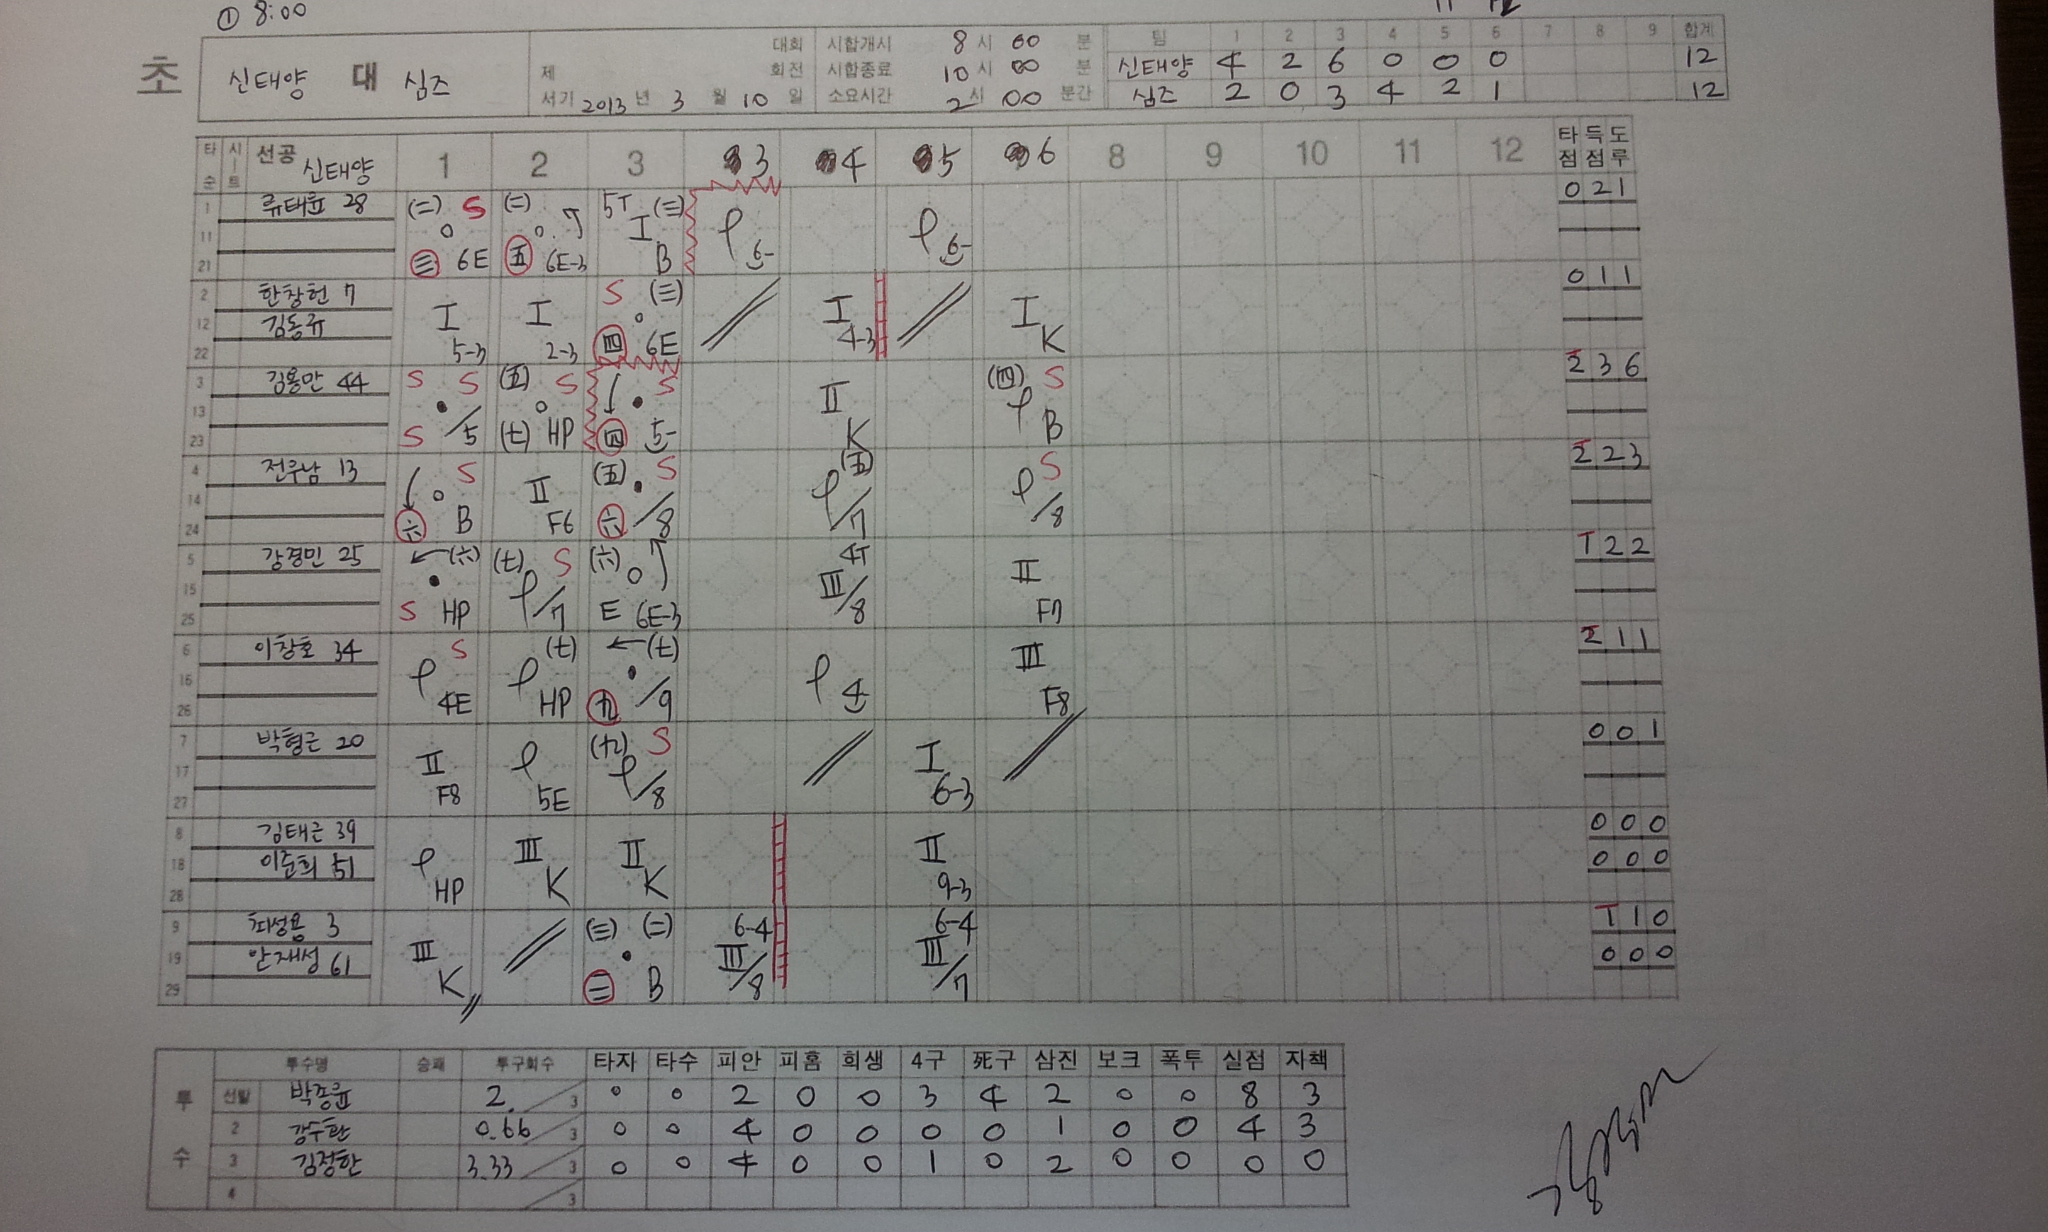 ① 8:00
초
신태양 대 심즈
대회
제 회전
서기 2013년 3월 10일
시합개시 8시 00분
시합종료 10시 00분
소요시간 2시 00분간
팀 1 2 3 4 5 6 7 8 9 합계
신태양 4 2 6 0 0 0 12
심즈 2 0 3 4 2 1 12
타순 시트 선공 신태양 1 2 3 3 4 5 6 8 9 10 11 12 타점 득점 도루
1 류태윤 28 (二) S (二) 5T (三) 0 2 1
11 三 6E 五 6E-3 I B 6- 6-
21
2 한창헌 7 S (三) 0 1 1
12 김동규 I I I I
22 5-3 2-3 四 6E 4-3 K
3 김용만 44 S S (五) S S (四) S 2 3 6
13 II
23 S /5 (七) HP 四 5- K B
4 전우남 13 S (五) S (五) S 2 2 3
14 II
24 六 B F6 六 /8 /7 /8
5 강경민 25 (六) (七) S (六) 4T T 2 2
15 III II
25 S HP /7 E 6E-3 /8 F7
6 이창호 34 S (七) (七) 2 1 1
16 III
26 4E HP /9 4 F8
7 박형근 20 S 0 0 1
17 II I
27 F8 5E /8 6-3
8 김태근 39 0 0 0
18 이준희 51 III II II 0 0 0
28 HP K K 9-3
9 최성용 3 (三) (二) 6-4 6-4 T 1 0
19 안재성 61 III III III 0 0 0
29 K 二 B /8 /7
투수 투수명 승패 투구회수 타자 타수 피안 피홈 희생 4구 死구 삼진 보크 폭투 실점 자책
선발 박종윤 2. /3 0 0 2 0 0 3 4 2 0 0 8 3
2 강수환 0.66 /3 0 0 4 0 0 0 0 1 0 0 4 3
3 김정한 3.33 /3 0 0 4 0 0 1 0 2 0 0 0 0
4 /3